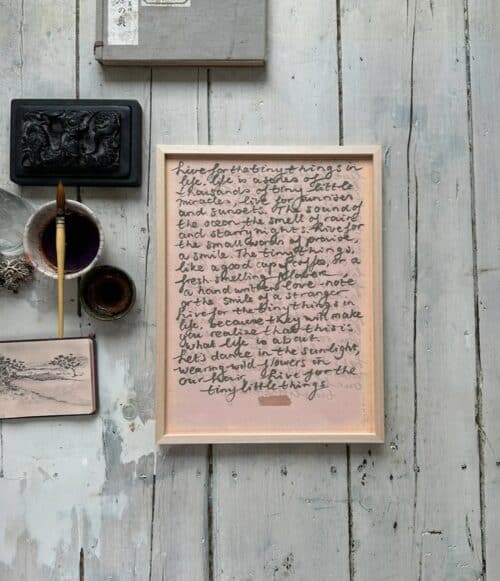 Live for the tiny things in
life. life is a series of
thousands of tiny little
miracles, live for sunrises
and sunsets. The sound of
the ocean the smell of rain
and starry nights. Live for
the small words of praise,
a smile. The tiny things,
like a good cup of coffee, or a
fresh smelling flower,
a hand written love-note
or the smile of a stranger
Live for the tiny things in
life. because they will make
you realize that this is
what life is about.
Let's dance in the sunlight,
wearing wild flowers in
our hair Live for the
tiny little things